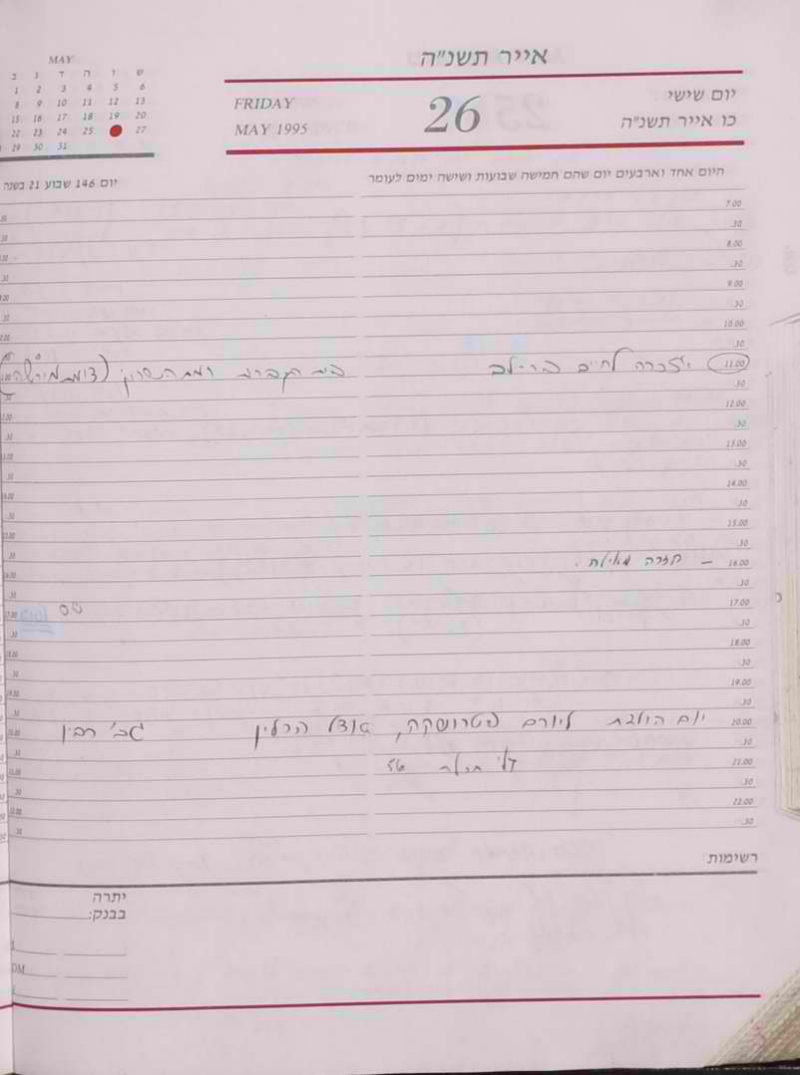 אייר תשנ״ה
MAY
ב ג ד ה ו ש
1 2 3 4 5 6
8 9 10 11 12 13
15 16 17 18 19 20
22 23 24 25 27
29 30 31
יום שישי
כו אייר תשנ״ה
26
FRIDAY
MAY 1995
היום אחד וארבעים יום שהם חמישה שבועות ושישה ימים לעומר
יום 146 שבוע 21 בשנה
7.00
.30
8.00
.30
9.00
.30
10.00
.30
11.00 אזכרה לחיים בר-לב בית הקברות
.30
12.00
.30
13.00
.30
14.00
.30
15.00
.30
16.00 – חזרה מאילת.
.30
17.00
.30
18.00
.30
19.00
.30
20.00 יום הולדת ליורם פטרושקה, אצל הרלין גב' רבין
.30
21.00 רח'
.30
22.00
.30
רשימות:
יתרה
בבנק:
DM